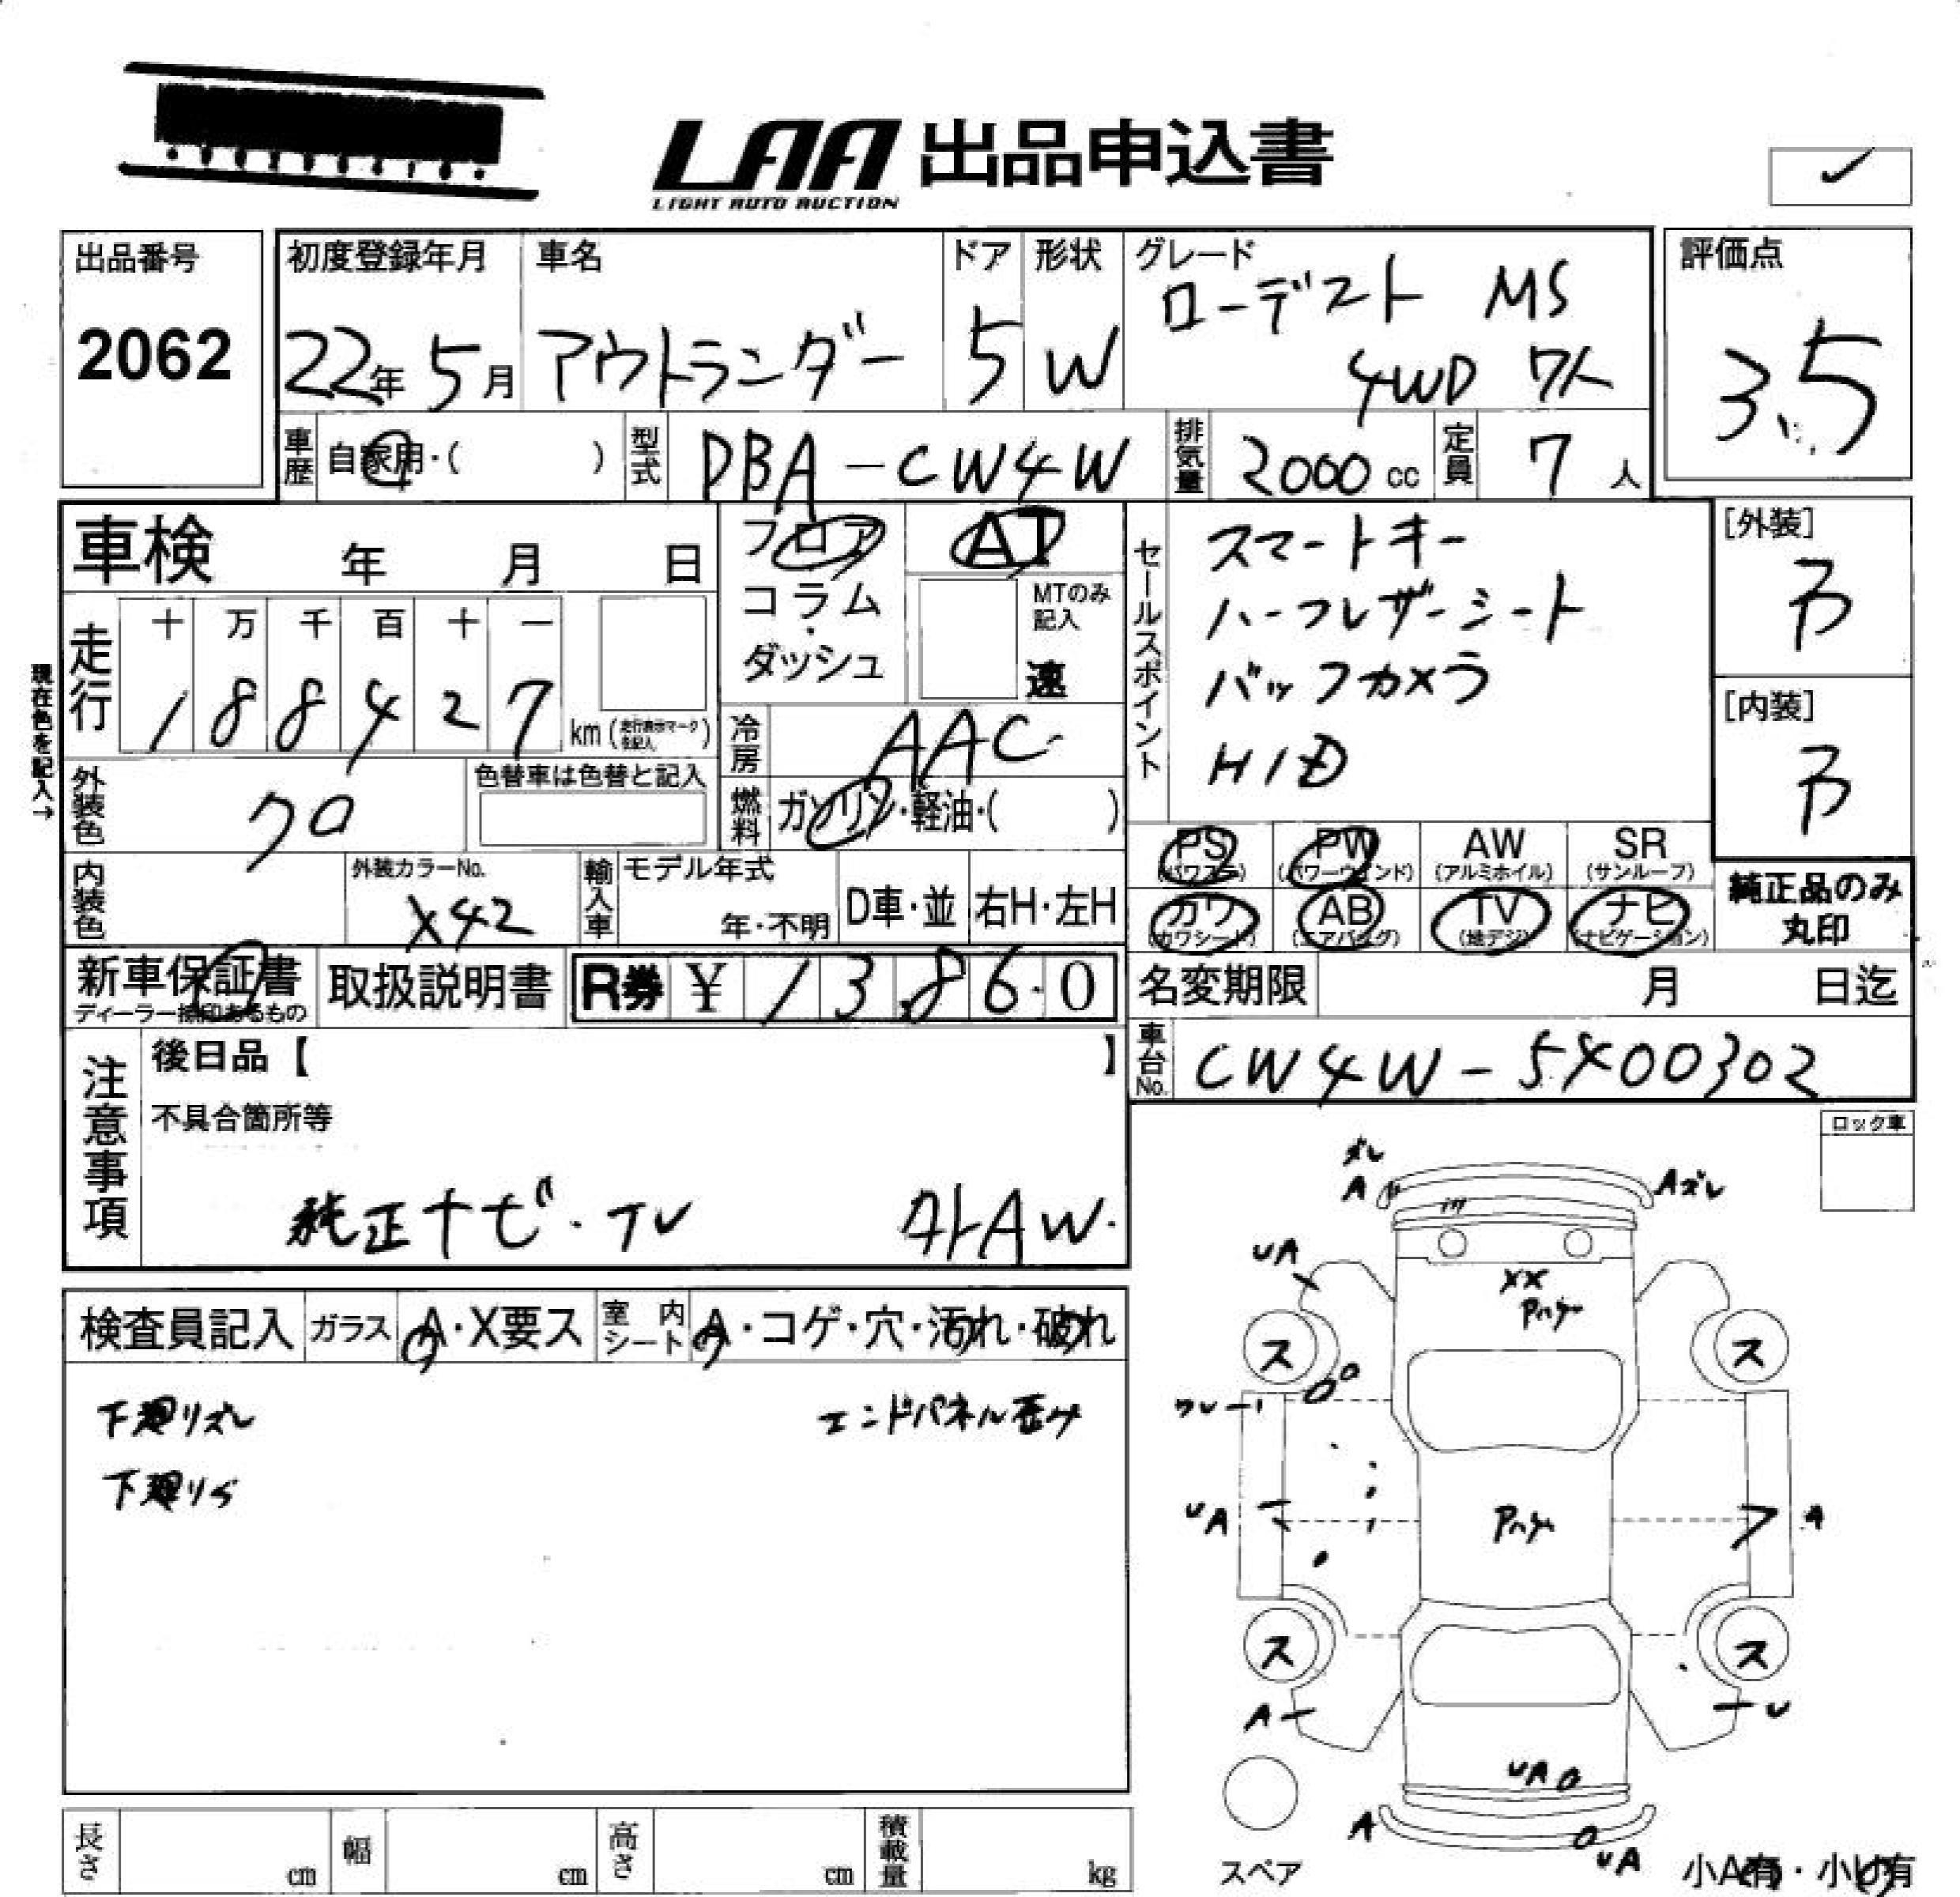 LAA 出品申込書
LIGHT AUTO AUCTION
出品番号
2062
初度登録年月
22年 5月
車名
アウトランダー
ドア
5
形状
W
グレード
ローデスト MS
4WD 7人
評価点
3.5
車歴 自家用・( )
型式 DBA-CW4W
排気量 2000 cc
定員 7 人
車検 年 月 日
走行
十 万 千 百 十 一
1 8 8 4 2 7
km (走行表示マークを記入)
現在色を記入→
フロア
コラム
・
ダッシュ
AT
MTのみ
記入
速
冷房 AAC
燃料 ガソリン・軽油・( )
セールスポイント
スマートキー
ハーフレザーシート
バックカメラ
HID
[外装]
[内装]
外装色 クロ
色替車は色替と記入
内装色
外装カラーNo.
X42
輸入車
モデル年式
年・不明
D車・並
右H・左H
PS (パワステ)
PW (パワーウインド)
AW (アルミホイル)
SR (サンルーフ)
カワ (カワシート)
AB (エアバッグ)
TV (地デジ)
ナビ (ナビゲーション)
純正品のみ
丸印
新車保証書
ディーラー捺印あるもの
取扱説明書
R券 ¥ 13,860
名変期限 月 日迄
車台No. CW4W-5400302
注意事項
後日品【 】
不具合箇所等
純正ナビ・TV 社外AW.
ロック車
検査員記入
ガラス A・X要ス
室内シート A・コゲ・穴・汚れ・破れ
下廻りズレ エンドパネル歪み
下廻りS
ズレ
A
Aズレ
UA
XX
Pハゲ
ス
ス
ワレ
UA
Pハゲ
A
ス
ス
A
U
UA
A
UA
スペア
小A有・小U有
長さ cm
幅 cm
高さ cm
積載量 kg